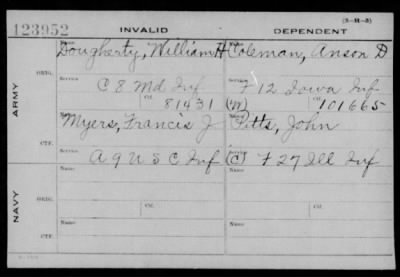 123952
INVALID
DEPENDENT
(3-H-3)
Name
Dougherty, William H
Name
Coleman, Anson D
ORIG.
Service
C 8 Md Inf
Service
F 12 Iowa Inf
Ctf. 81431
(M) 101665
ARMY
Name
Myers, Francis J
Name
Pitts, John
CTF.
Service
A 9 U S C Inf
(C) F 27 Ill Inf
NAVY
ORIG.
Name
Name
Ctf.
Ctf.
CTF.
Name
Name